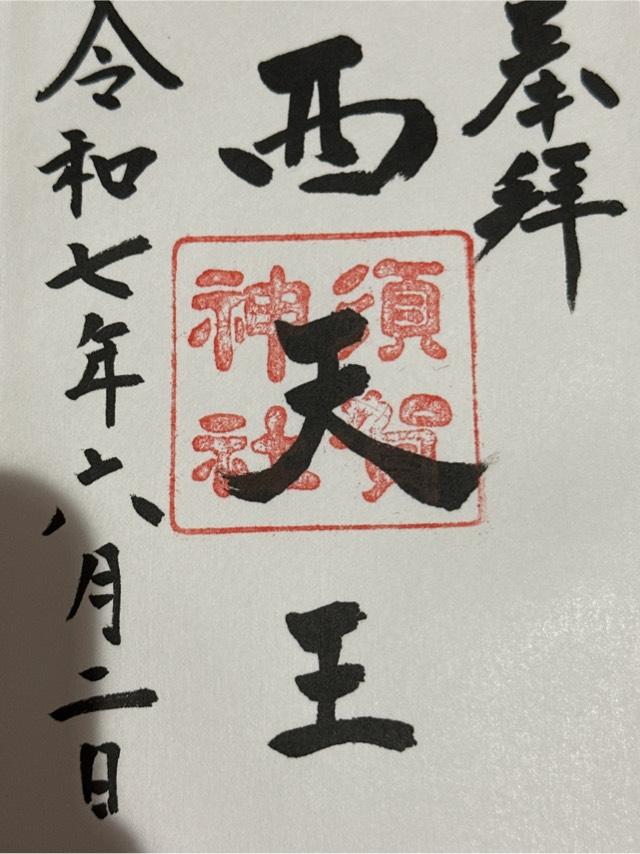 奉拝
西天王
須賀
神社
令和七年六月二日